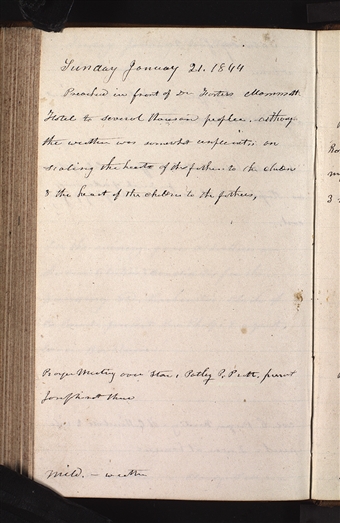 Sunday January 21. 1844
Preached in front of Dr Fosters Mammoth
Hotel to several thousan people. although
the weather was somewhat unpleasant, on
sealing the hearts of the fathers to the children
& the heart of the children to the fathers,
Prayer Meeting over Store, P. P. Pratt. present
Joseph not there
Mild. - weather
3